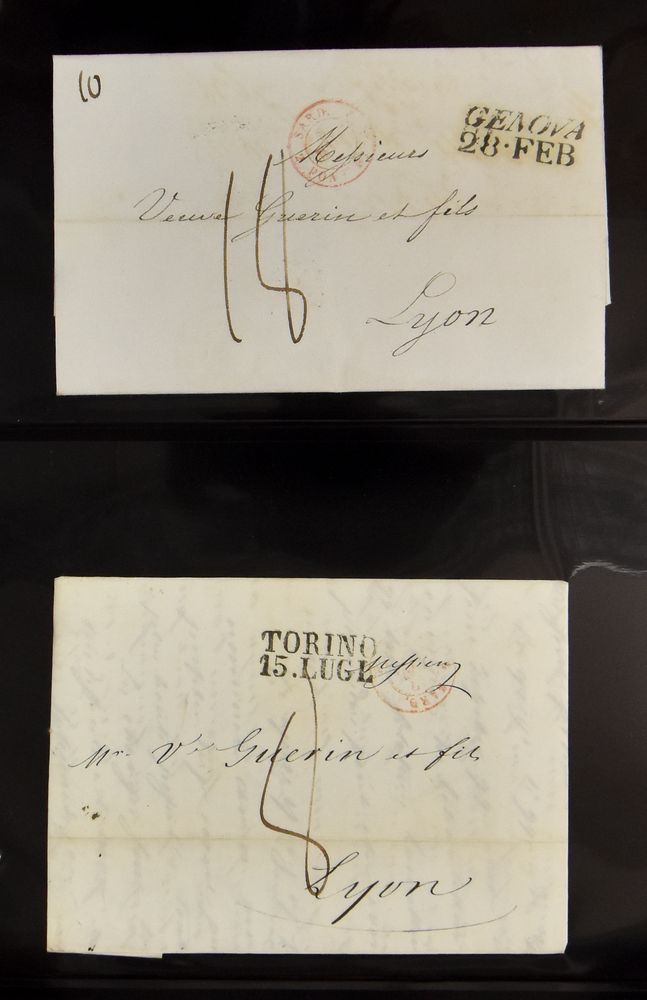 10
SARD.
PON
GENOVA
28·FEB
Messieurs
Veuve Guerin et fils
Lyon
TORINO
15.LUGL
SARD.
Mr. Ve Guerin et fils
Lyon